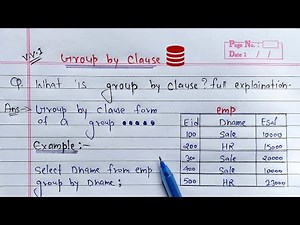 v.v.I
Group by Clause
Page No. :
Date :
Q. What is group by clause? full explaination.
Ans → Group by clause form
of a group .....
Example:-
Select Dname from emp
group by Dname;
emp
Eid Dname Esal
100 Sale 10000
200 HR 15000
300 Sale 20000
400 Sale 10000
500 HR 23000